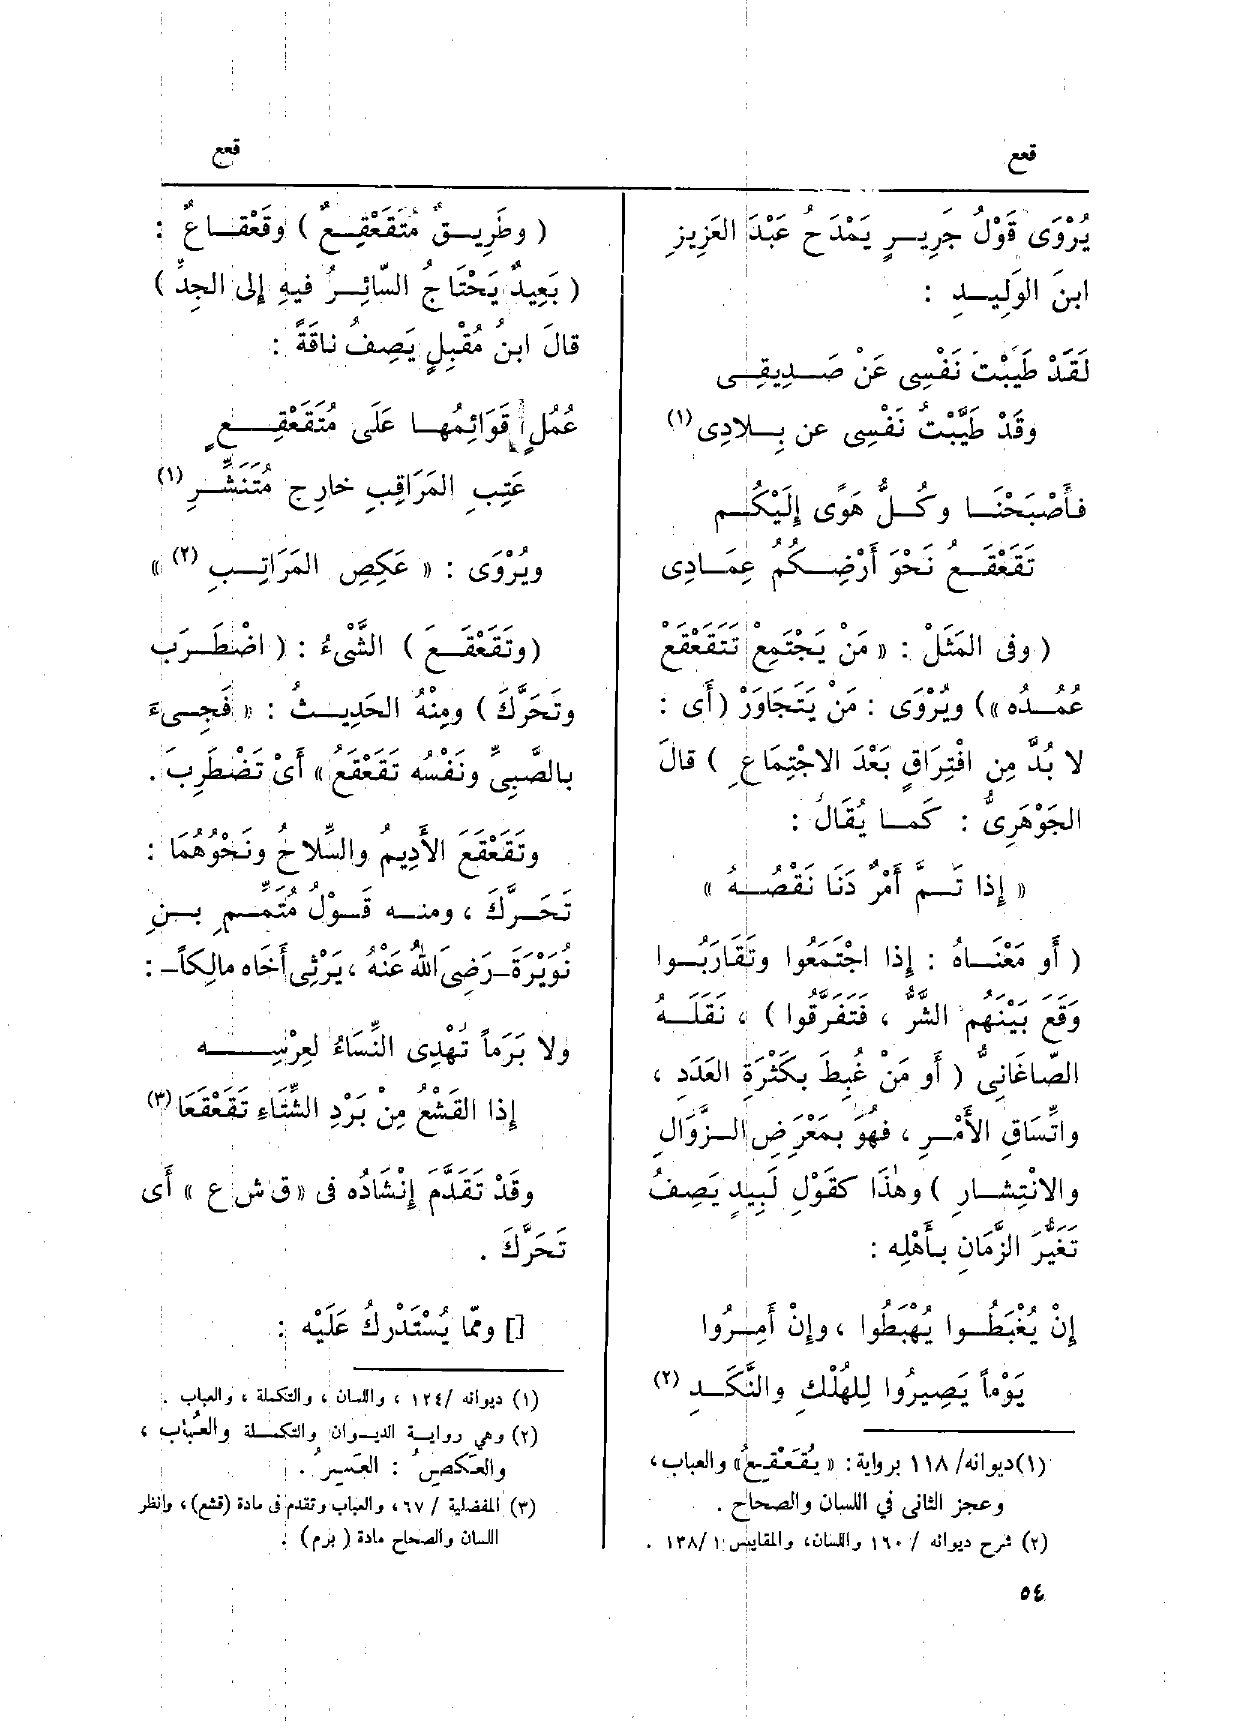 قعع
قعع
يُرْوَى قَوْلُ جَرِيرٍ يَمْدَحُ عَبْدَ العَزِيزِ
ابنَ الوَلِيدِ :
لَقَدْ طَيَّبْتَ نَفْسِى عَنْ صَدِيقِى
وقَدْ طَيَّبْتُ نَفْسِى عن بِلادِى (١)
فأَصْبَحْنَا وكُلُّ هَوًى إِلَيْكُم
تَقَعْقَعُ نَحْوَ أَرْضِكُمُ عِمَادِى
( وفى المَثَلْ : « مَنْ يَجْتَمِعْ تَتَقَعْقَعْ
عُمُدُه ») ويُرْوَى : مَنْ يَتَجَاوَرْ (أَى :
لا بُدَّ مِن افْتِرَاقٍ بَعْدَ الاجْتِمَاعِ ) قالَ
الجَوْهَرِىُّ : كَما يُقَالُ :
« إِذا تَمَّ أَمْرٌ دَنَا نَقْصُهُ »
( أَو مَعْنَاهُ : إِذا اجْتَمَعُوا وتَقَارَبُوا
وَقَعَ بَيْنَهُم الشَّرُّ ، فَتَفَرَّقُوا ) ، نَقَلَهُ
الصّاغَانِىُّ ( أَو مَنْ غُبِطَ بكَثْرَةِ العَدَدِ ،
واتِّسَاقِ الأَمْرِ ، فهُوَ بمَعْرَضِ الزَّوَالِ
والانْتِشارِ ) وهٰذَا كقَوْلِ لَبِيدٍ يَصِفُ
تَغَيُّرَ الزَّمَانِ بأَهْلِه :
إِنْ يُغْبَطُوا يُهْبَطُوا ، وإِنْ أَمِرُوا
يَوْماً يَصِيرُوا لِلهُلْكِ والنَّكَدِ (٢)
(١) ديوانه/ ١١٨ برواية: « يُقَعْقِعُ» والعباب،
وعجز الثانى في اللسان والصحاح .
(٢) شرح ديوانه / ١٦٠ واللسان، والمقاييس ١/ ١٣٨ .
( وطَرِيقٌ مُتَقَعْقِعٌ ) وقَعْقاعٌ :
( بَعِيدٌ يَحْتَاجُ السّائِرُ فيهِ إِلى الجِدِّ )
قالَ ابنُ مُقْبِلٍ يَصِفُ ناقَةً :
عُمُلٍ قَوَائِمُها عَلَى مُتَقَعْقِعٍ
عَتِبِ المَرَاقِبِ خارِجٍ مُتَنَشِّرِ (١)
ويُرْوَى : « عَكِصِ المَرَاتِبِ (٢) »
(وتَقَعْقَعَ ) الشَّىْءُ : ( اضْطَرَبَ
وتَحَرَّكَ ) ومِنْهُ الحَدِيثُ : « فَجِىءَ
بالصَّبِىِّ ونَفْسُه تَقَعْقَعُ » أَىْ تَضْطَرِبُ .
وتَقَعْقَعَ الأَدِيمُ والسِّلاحُ ونَحْوُهُمَا :
تَحَرَّكَ ، ومنه قَوْلُ مُتَمِّمِ بنِ
نُوَيْرَةَ ـ رَضِىَ اللهُ عَنْهُ ، يَرْثِى أَخَاه مالِكاً ـ :
ولا بَرَماً تُهْدِى النِّسَاءُ لعِرْسِه
إِذا القَشْعُ مِنْ بَرْدِ الشِّتَاءِ تَقَعْقَعَا (٣)
وقَدْ تَقَدَّمَ إِنْشَادُه فى « ق ش ع » أَى
تَحَرَّكَ .
[] ومّما يُسْتَدْرَكُ عَلَيْه :
(١) ديوانه /١٢٤ ، واللسان ، والتكملة ، والعباب .
(٢) وهي رواية الديوان والتكملة والعُبَاب ،
والعَكَصُ : العَسِيرُ .
(٣) المفضلية / ٦٧، والعباب وتقدم فى مادة (قشع)، وانظر
اللسان والصحاح مادة ( برم ) .
٥٤